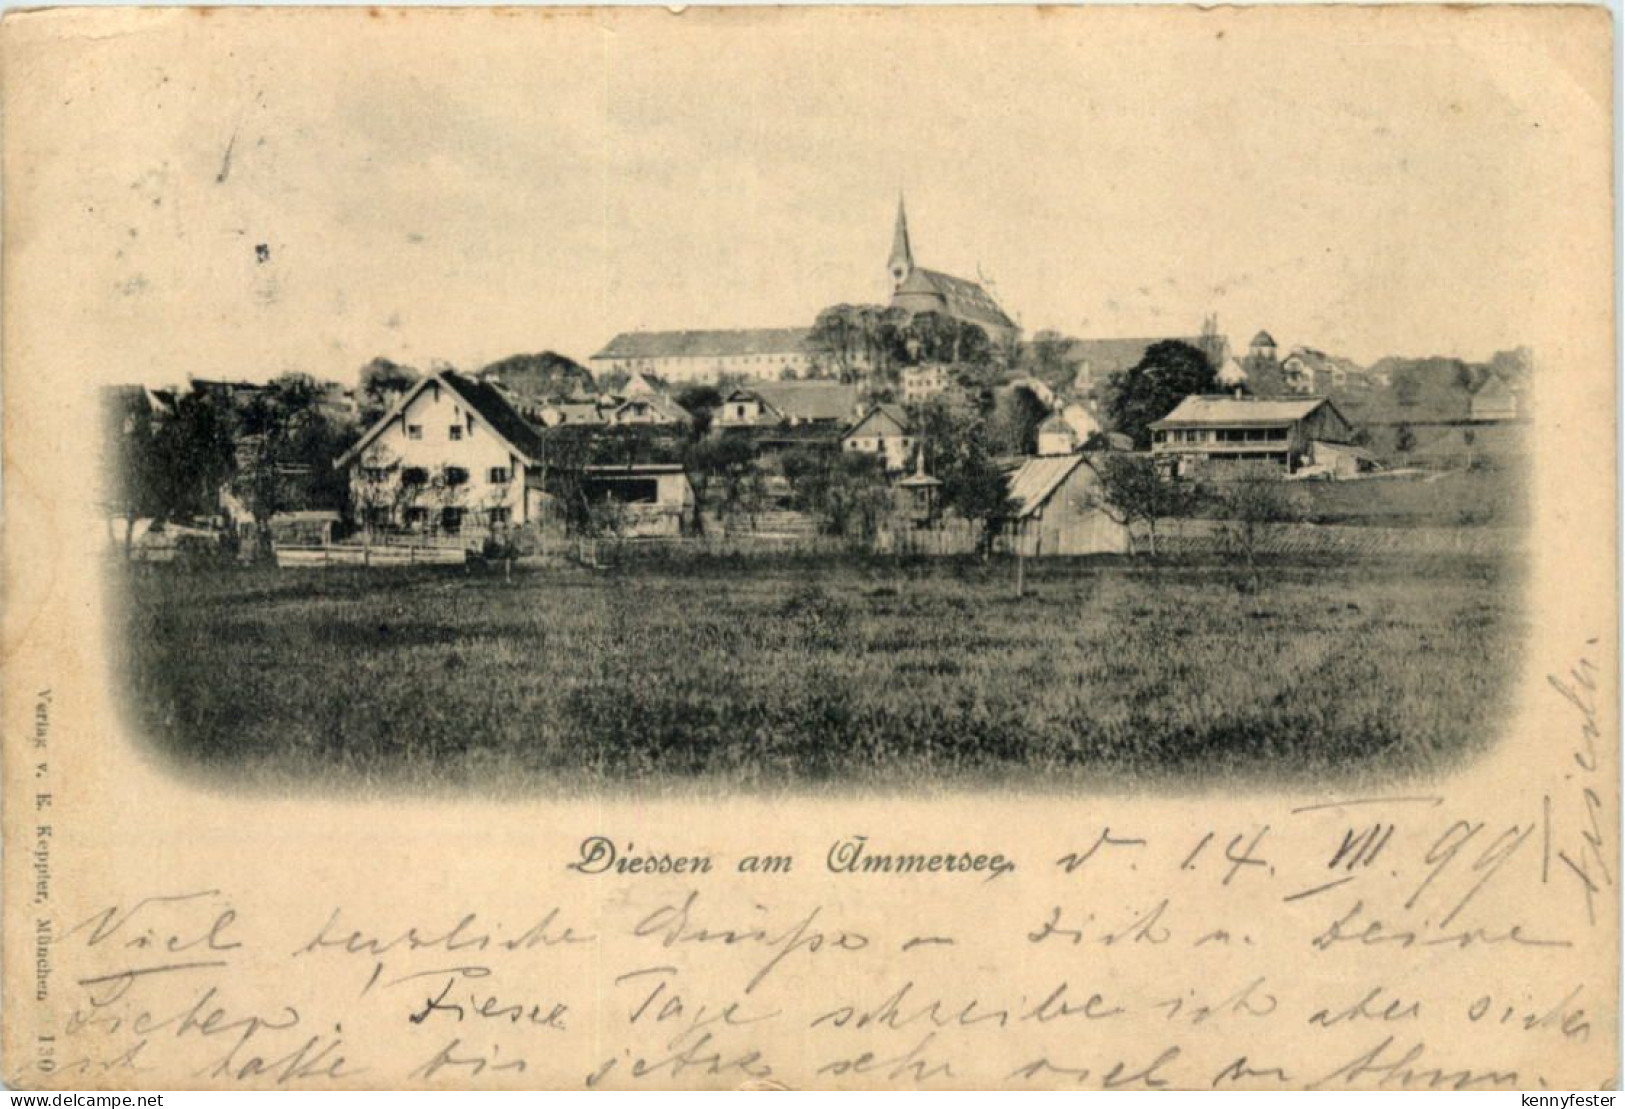 Diessen am Ammersee. d. 14. VII. 99
Viel herzliche Grüsse an Dich u. Deine
Lieben! Dieser Tage schreibe ich aber sicher
ich hatte bis jetzt sehr viel zu thun.
Verlag v. E. Keppler, München 130
delcampe.net
kennyfester